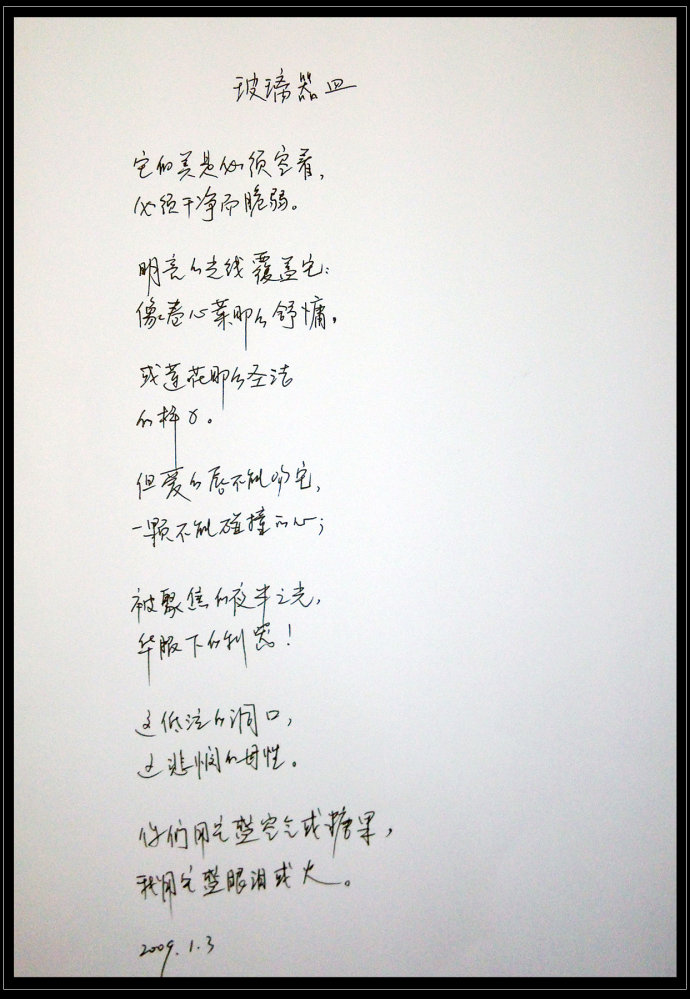 玻璃器皿
它的美是必须空着,
必须干净而脆弱。
明亮的光线覆盖它:
像卷心菜那么舒慵,
或莲花那么圣洁
的样子。
但爱的唇不能吻它,
一颗不能碰撞的心;
被聚焦的夜半之光,
华服下的利器!
这低洼的洞口,
这悲悯的母性。
你们用它盛空气或糖果,
我用它盛眼泪或火。
2009.1.3